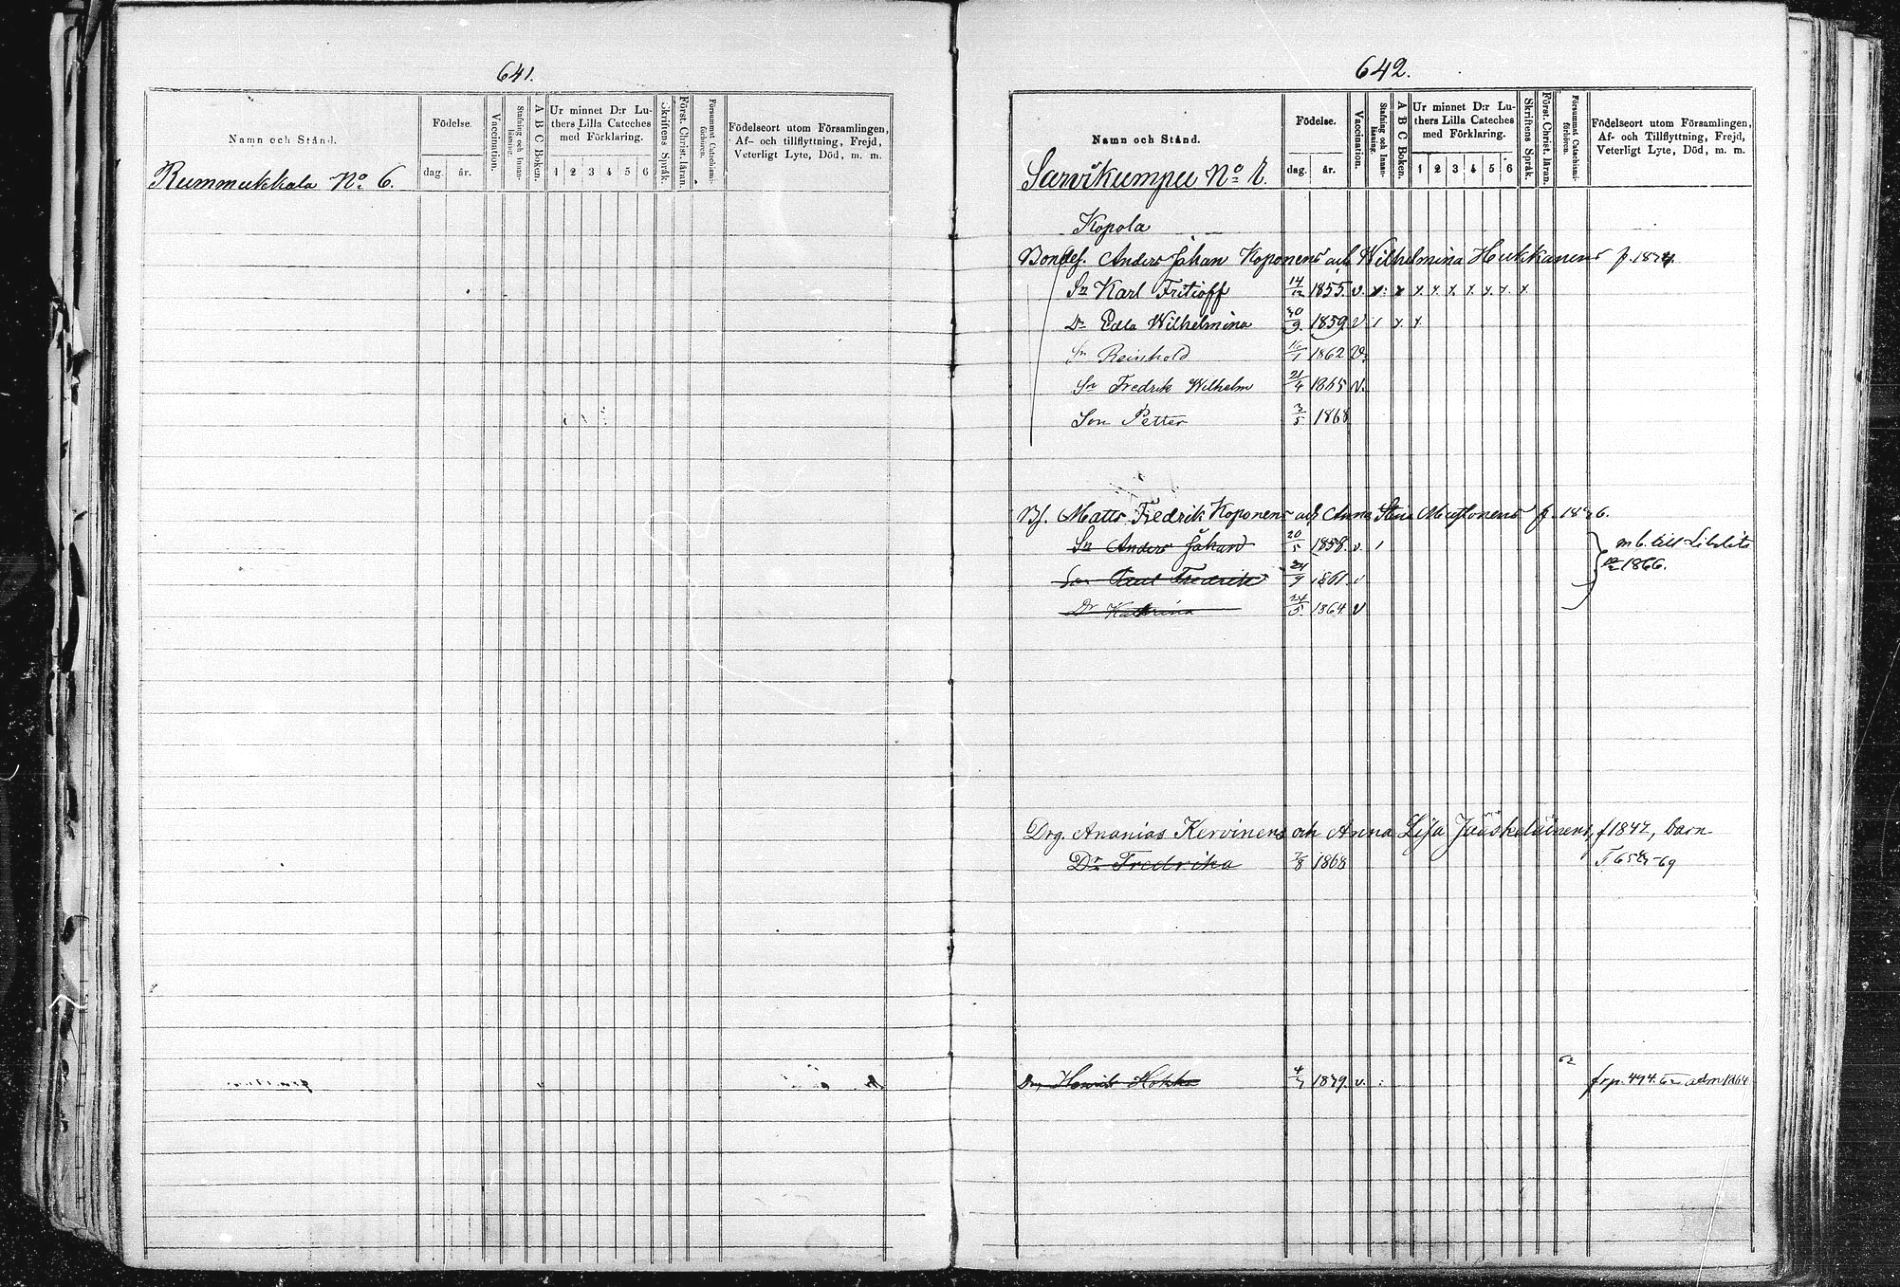 641.
Namn och Stånd.
Födelse.
dag. år.
Vaccination.
Stafning och Innanläsning.
A B C Boken.
Ur minnet D:r Luthers Lilla Cateches med Förklaring.
1 2 3 4 5 6
Skriftens Språk.
Först. Christ. läran.
Försummat Catechismiförhören.
Födelseort utom Församlingen,
Af- och tillflyttning, Frejd,
Veterligt Lyte, Död, m. m.
Rummukkala No 6.
642.
Namn och Stånd.
Födelse.
dag. år.
Vaccination.
Stafning och Innanläsning.
A B C Boken.
Ur minnet D:r Luthers Lilla Cateches med Förklaring.
1 2 3 4 5 6
Skriftens Språk.
Först. Christ. läran.
Försummat Catechismiförhören.
Födelseort utom Församlingen,
Af- och Tillflyttning, Frejd,
Veterligt Lyte, Död, m. m.
Sarvikumpu No
Kopola
Bondes. Anders Johan Koponens och Wilhelmina Hukkanens p.
Sn Karl Fritioff 14/12 1855. v. x x x x x x x x x
Dr Edla Wilhelmina 30/9 1859 v / x x
Sn Reinhold 16/1 1862 v.
Sn Fredrik Wilhelm 21/4 1865 v.
Son Petter 3/5 1868
Bf. Matts Fredrik Koponens och Anna Stina Mustonens f.
Sn Anders Johan 20/5 1858. v. / m b. till Libelits
Son Fredrik 21/9 1861. v 1866.
Dr Katrina 24/5 1864 v
Drg. Ananias Kervinens och Anna Lisa Jääskeläinens, f 1842, barn
Dr Fredrika 7/8 1868
Henrik Hokka 4/7 v. frp. 494. adm 1864